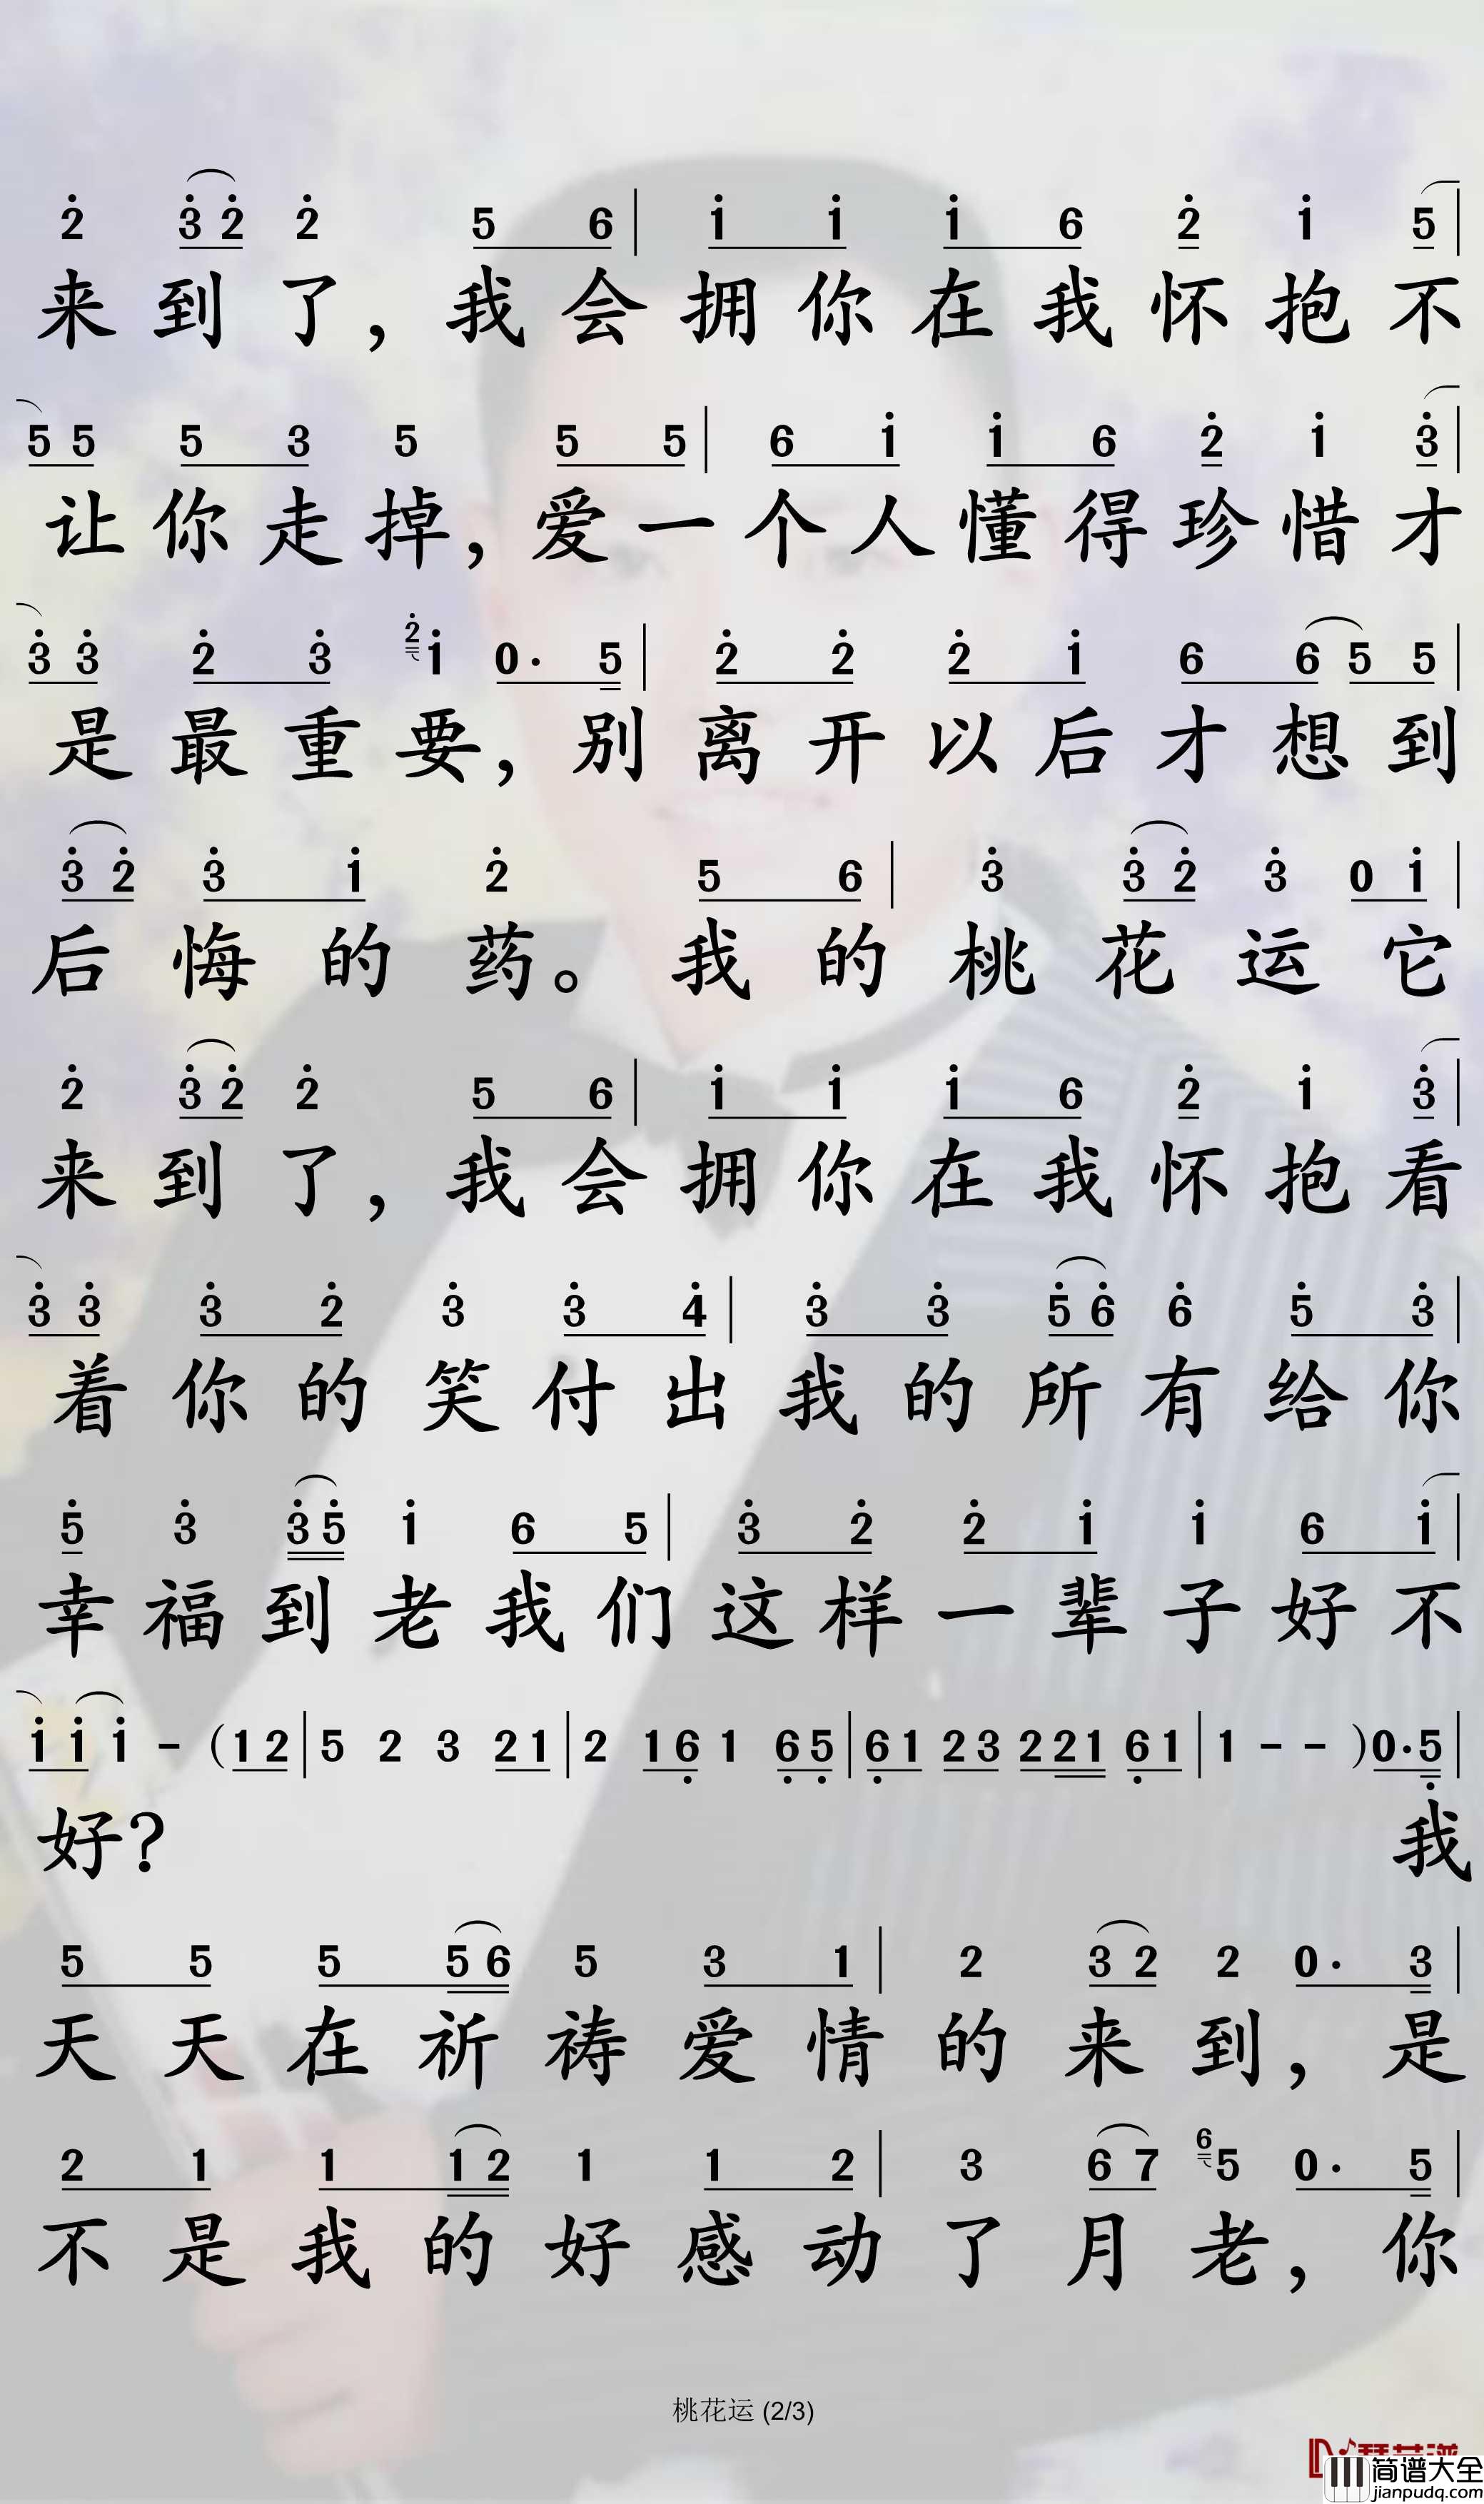 2 3 2 2 5 6 | 1 1 1 6 2 1 5 |
来 到 了， 我 会 拥 你 在 我 怀 抱 不
5 5 5 3 5 5 5 | 6 1 1 6 2 1 3 |
让 你 走 掉， 爱 一 个 人 懂 得 珍 惜 才
3 3 2 3 2 1 0 · 5 | 2 2 2 1 6 6 5 5 |
是 最 重 要， 别 离 开 以 后 才 想 到
3 2 3 1 2 5 6 | 3 3 2 3 0 1 |
后 悔 的 药。 我 的 桃 花 运 它
2 3 2 2 5 6 | 1 1 1 6 2 1 3 |
来 到 了， 我 会 拥 你 在 我 怀 抱 看
3 3 3 2 3 3 4 | 3 3 5 6 6 5 3 |
着 你 的 笑 付 出 我 的 所 有 给 你
5 3 3 5 1 6 5 | 3 2 2 1 1 6 1 |
幸 福 到 老 我 们 这 样 一 辈 子 好 不
1 1 1 - (1 2 | 5 2 3 2 1 | 2 1 6 1 6 5 | 6 1 2 3 2 2 1 6 1 | 1 - - ) 0 · 5 |
好? 我
5 5 5 5 6 5 3 1 | 2 3 2 2 0 · 3 |
天 天 在 祈 祷 爱 情 的 来 到， 是
2 1 1 1 2 1 1 2 | 3 6 7 6 5 0 · 5 |
不 是 我 的 好 感 动 了 月 老， 你
桃花运 (2/3)
简谱大全
jianpudq.com